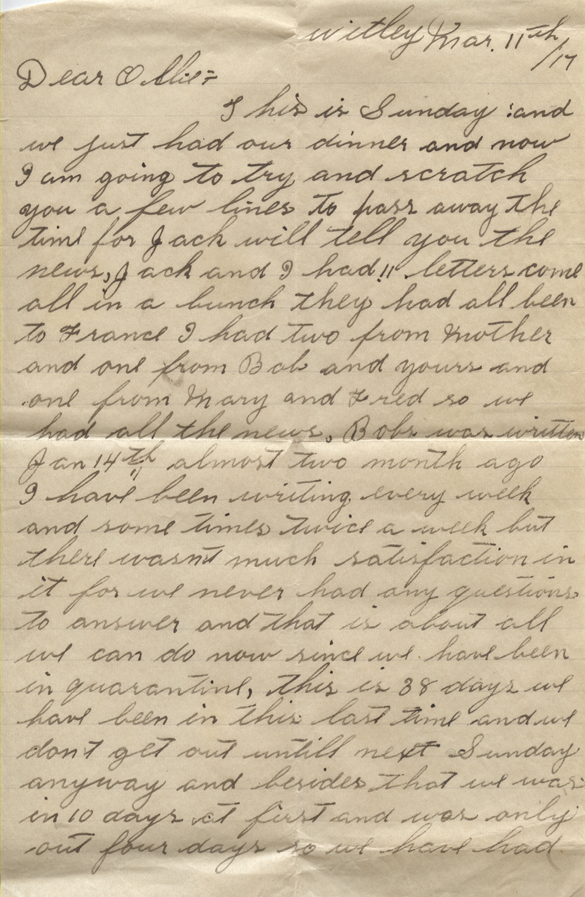 Witley Mar. 11th
/17
Dear Ollie =
This is Sunday and
we just had our dinner and now
I am going to try and scratch
you a few lines to pass away the
time for Jack will tell you the
news, Jack and I had 11 letters come
all in a bunch they had all been
to France I had two from Mother
and one from Bob and yours and
one from Mary and Fred so we
had all the news. Bobs was written
Jan 14th almost two month ago
I have been writing every week
and some times twice a week but
there wasnt much satisfaction in
it for we never had any questions
to answer and that is about all
we can do now since we have been
in quarantine, this is 38 days we
have been in this last time and we
dont get out untill next Sunday
anyway and besides that we was
in 10 days at first and was only
out four days so we have had